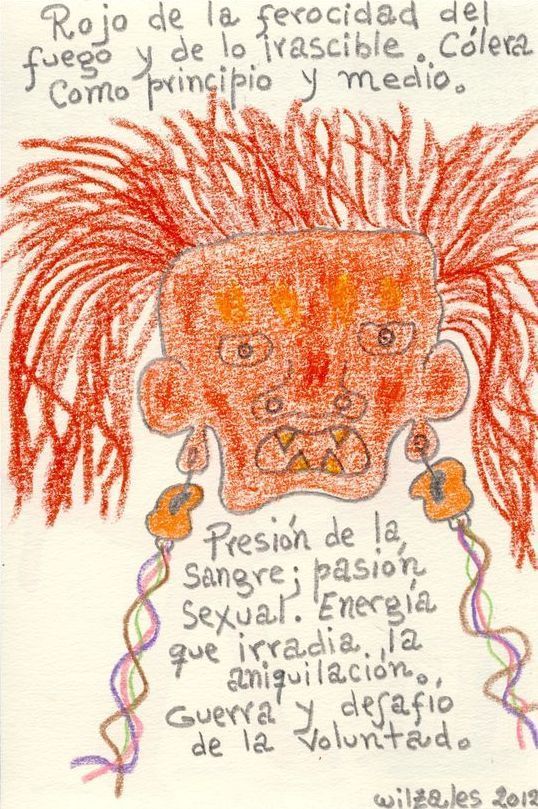 Rojo de la ferocidad del
fuego y de lo irascible. Cólera
como principio y medio.
Presión de la,
sangre; pasión,
sexual. Energía
que irradia. la
aniquilación.,
Guerra y desafio
de la voluntad.
wilzales 2012